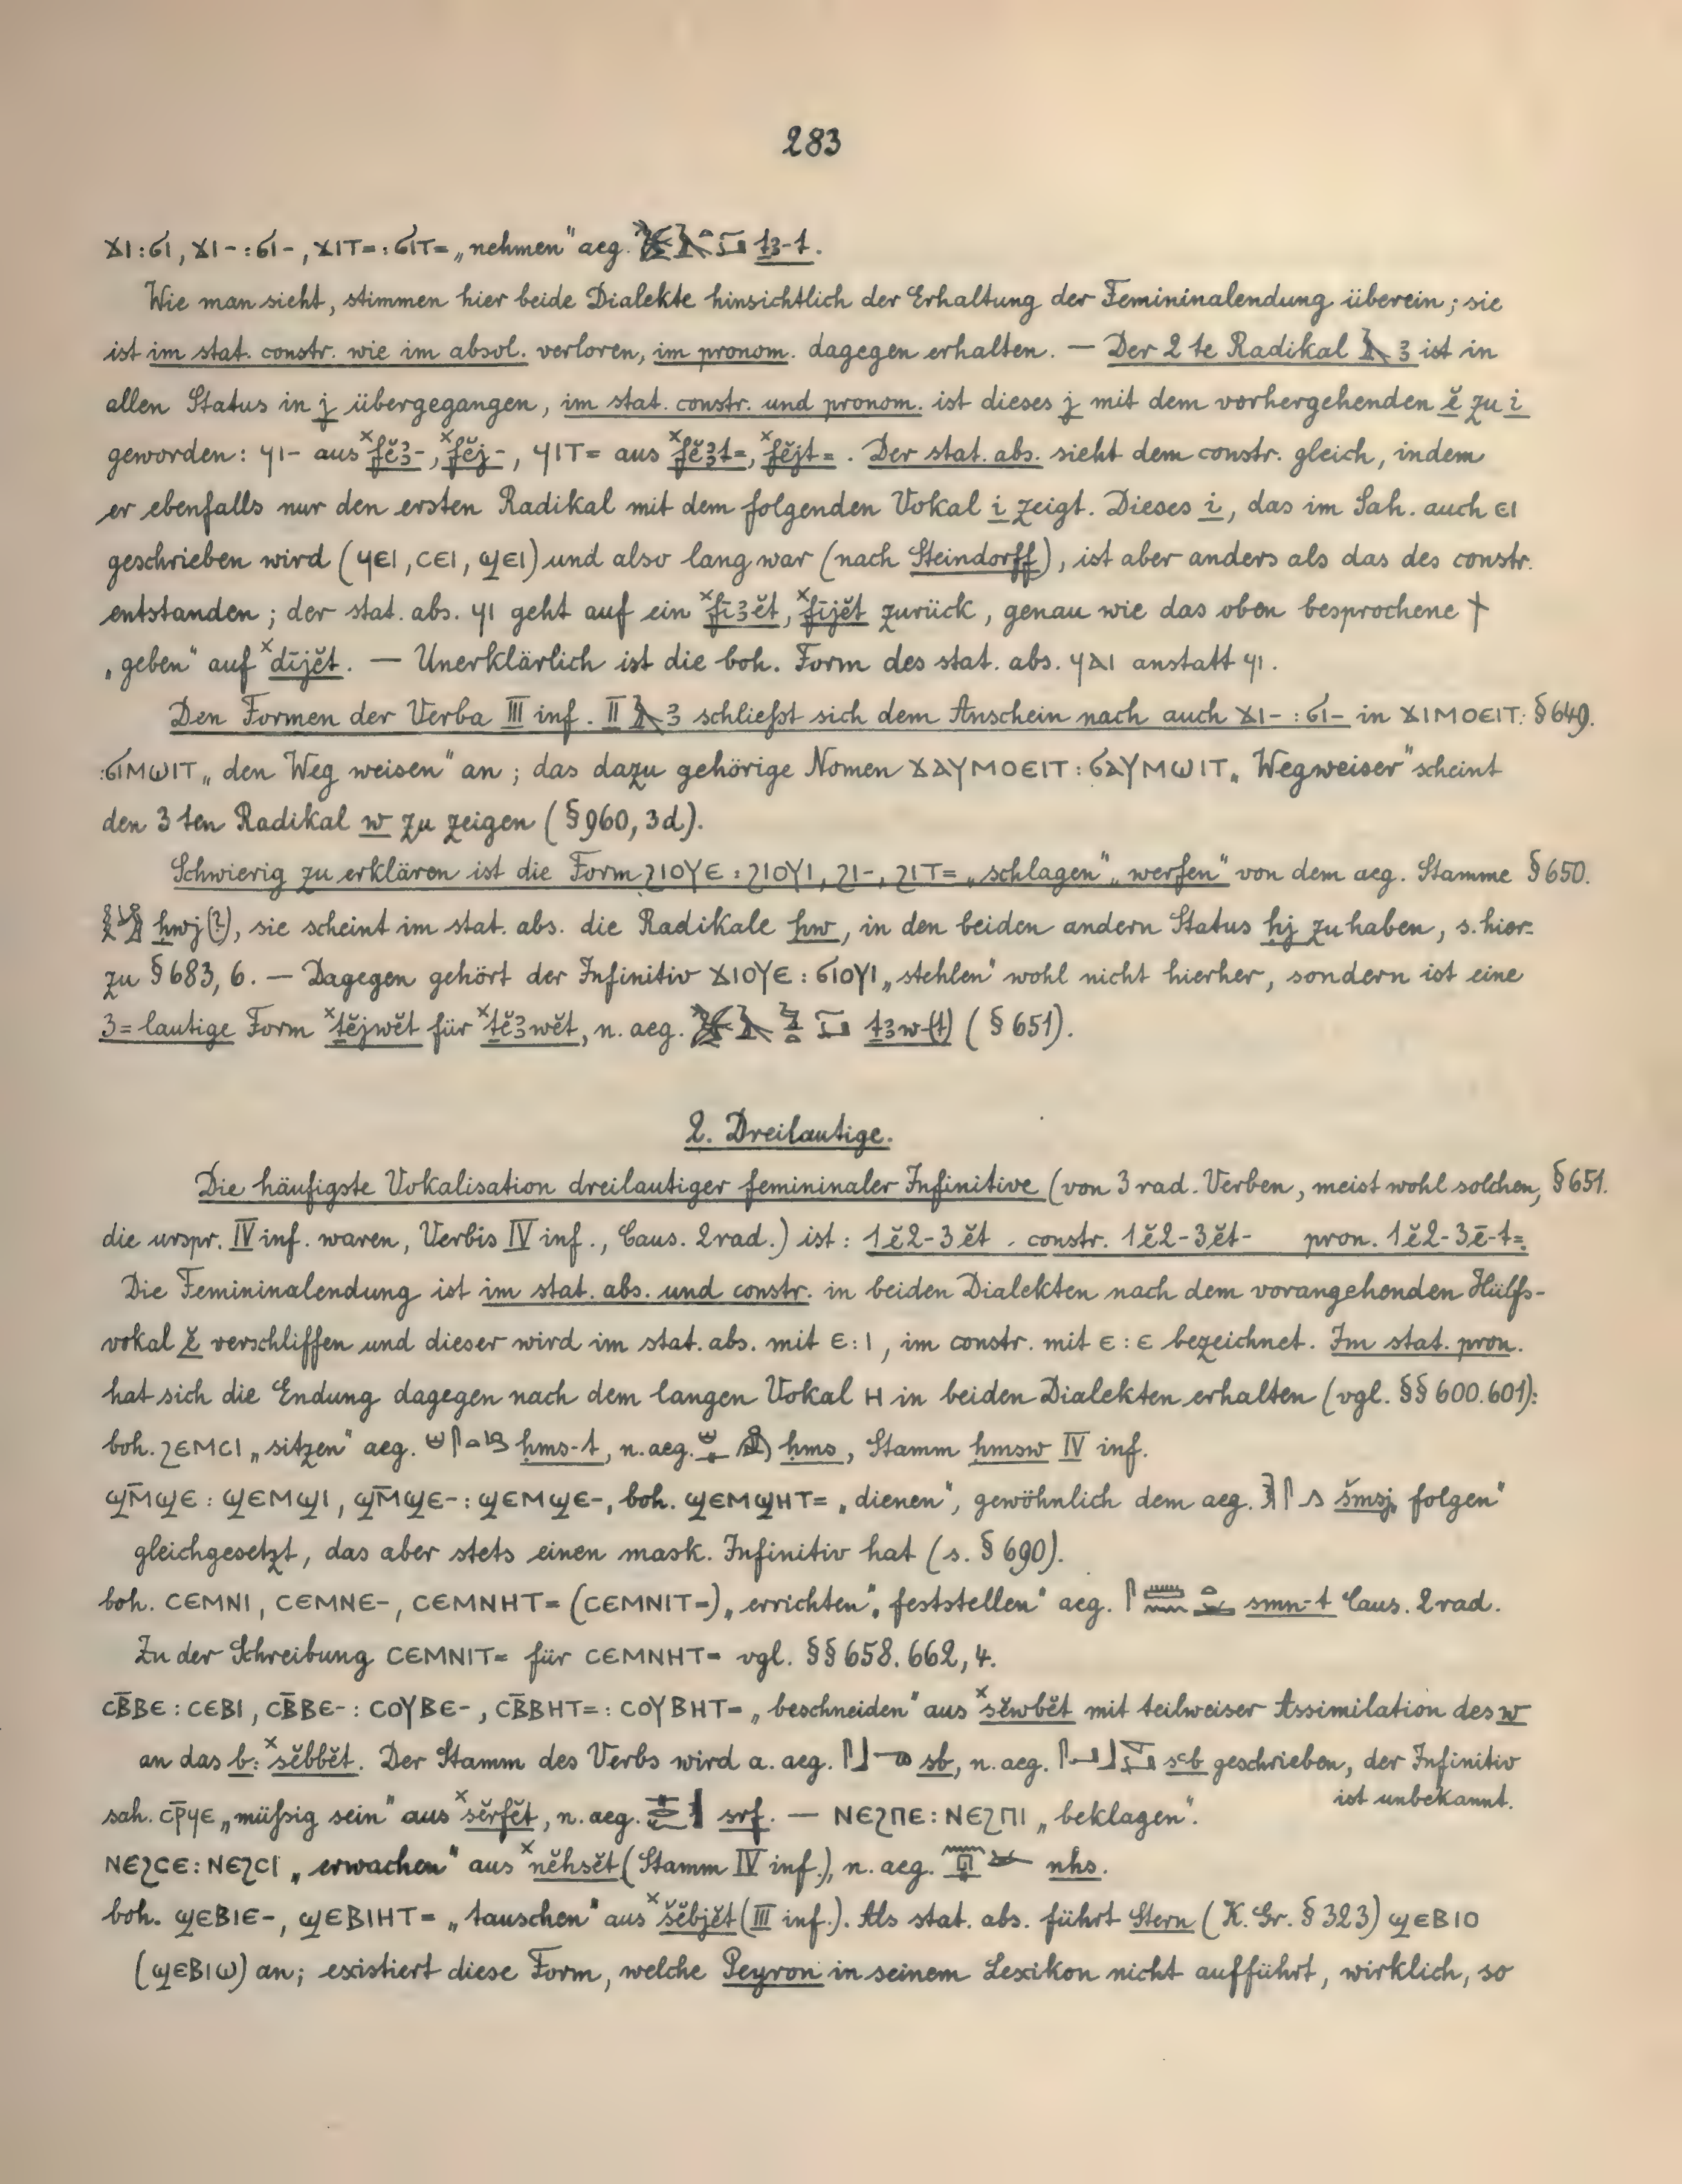 283
ϫⲓ : ϭⲓ, ϫⲓ- : ϭⲓ-, ϫⲓⲧ= : ϭⲓⲧ= „nehmen" aeg. ṯꜣ-t.
Wie man sieht, stimmen hier beide Dialekte hinsichtlich der Erhaltung der Femininalendung überein; sie
ist im stat. constr. wie im absol. verloren, im pronom. dagegen erhalten. — Der 2te Radikal 𓄿 ꜣ ist in
allen Status in j übergegangen, im stat. constr. und pronom. ist dieses j mit dem vorhergehenden ĕ zu i
geworden: ϥⲓ- aus ˣfĕꜣ-, ˣfĕj-, ϥⲓⲧ= aus ˣfĕꜣt=, ˣfĕjt=. Der stat. abs. sieht dem constr. gleich, indem
er ebenfalls nur den ersten Radikal mit dem folgenden Vokal i zeigt. Dieses i, das im Sah. auch ⲉⲓ
geschrieben wird (ϥⲉⲓ, ⲥⲉⲓ, ϣⲉⲓ) und also lang war (nach Steindorff), ist aber anders als das des constr.
entstanden; der stat. abs. ϥⲓ geht auf ein ˣfīꜣĕt, ˣfījĕt zurück, genau wie das oben besprochene ϯ
„geben" auf ˣdījĕt. — Unerklärlich ist die boh. Form des stat. abs. ϥⲁⲓ anstatt ϥⲓ.
Den Formen der Verba III inf. II 𓄿 ꜣ schließt sich dem Anschein nach auch ϫⲓ- : ϭⲓ- in ϫⲓⲙⲟⲉⲓⲧ: § 649.
: ϭⲓⲙⲱⲓⲧ „den Weg weisen" an; das dazu gehörige Nomen ϫⲁⲩⲙⲟⲉⲓⲧ : ϭⲁⲩⲙⲱⲓⲧ „Wegweiser" scheint
den 3ten Radikal w zu zeigen (§ 960, 3d).
Schwierig zu erklären ist die Form ϩⲓⲟⲩⲉ : ϩⲓⲟⲩⲓ, ϩⲓ-, ϩⲓⲧ= „schlagen" „werfen" von dem aeg. Stamme § 650.
ḥwj(?), sie scheint im stat. abs. die Radikale ḥw, in den beiden andern Status ḥj zu haben, s. hier=
zu § 683, 6. — Dagegen gehört der Infinitiv ϫⲓⲟⲩⲉ : ϭⲓⲟⲩⲓ „stehlen" wohl nicht hierher, sondern ist eine
3=lautige Form ˣṯĕjwĕt für ˣṯĕꜣwĕt, n. aeg. ṯꜣw-(t) (§ 651).
2. Dreilautige.
Die häufigste Vokalisation dreilautiger femininaler Infinitive (von 3rad. Verben, meist wohl solchen, § 651.
die urspr. IV inf. waren, Verbis IV inf., Caus. 2rad.) ist: 1ĕ2-3ĕt . constr. 1ĕ2-3ĕt- pron. 1ĕ2-3ē-t=.
Die Femininalendung ist im stat. abs. und constr. in beiden Dialekten nach dem vorangehenden Hülfs-
vokal ĕ verschliffen und dieser wird im stat. abs. mit ⲉ : ⲓ, im constr. mit ⲉ : ⲉ bezeichnet. Im stat. pron.
hat sich die Endung dagegen nach dem langen Vokal ⲏ in beiden Dialekten erhalten (vgl. §§ 600. 601):
boh. ϩⲉⲙⲥⲓ „sitzen" aeg. ḥms-t, n. aeg. ḥms, Stamm ḥmsw IV inf.
ϣⲙ̄ϣⲉ : ϣⲉⲙϣⲓ, ϣⲙ̄ϣⲉ- : ϣⲉⲙϣⲉ-, boh. ϣⲉⲙϣⲏⲧ= „dienen", gewöhnlich dem aeg. šmsj „folgen"
gleichgesetzt, das aber stets einen mask. Infinitiv hat (s. § 690).
boh. ⲥⲉⲙⲛⲓ, ⲥⲉⲙⲛⲉ-, ⲥⲉⲙⲛⲏⲧ= (ⲥⲉⲙⲛⲓⲧ=) „errichten", „feststellen" aeg. smn-t Caus. 2rad.
Zu der Schreibung ⲥⲉⲙⲛⲓⲧ= für ⲥⲉⲙⲛⲏⲧ= vgl. §§ 658. 662, 4.
ⲥⲃ̄ⲃⲉ : ⲥⲉⲃⲓ, ⲥⲃ̄ⲃⲉ- : ⲥⲟⲩⲃⲉ-, ⲥⲃ̄ⲃⲏⲧ= : ⲥⲟⲩⲃⲏⲧ= „beschneiden" aus ˣsĕwbĕt mit teilweiser Assimilation des w
an das b: ˣsĕbbĕt. Der Stamm des Verbs wird a. aeg. sb, n. aeg. sꜥb geschrieben, der Infinitiv
ist unbekannt.
sah. ⲥⲣ̄ϥⲉ „müßig sein" aus ˣsĕrfĕt, n. aeg. srf. — ⲛⲉϩⲡⲉ : ⲛⲉϩⲡⲓ „beklagen".
ⲛⲉϩⲥⲉ : ⲛⲉϩⲥⲓ „erwachen" aus ˣnĕhsĕt (Stamm IV inf.), n. aeg. nhs.
boh. ϣⲉⲃⲓⲉ-, ϣⲉⲃⲓⲏⲧ= „tauschen" aus ˣšĕbjĕt (III inf.). Als stat. abs. führt Stern (K. Gr. § 323) ϣⲉⲃⲓⲟ
(ϣⲉⲃⲓⲱ) an; existiert diese Form, welche Peyron in seinem Lexikon nicht aufführt, wirklich, so